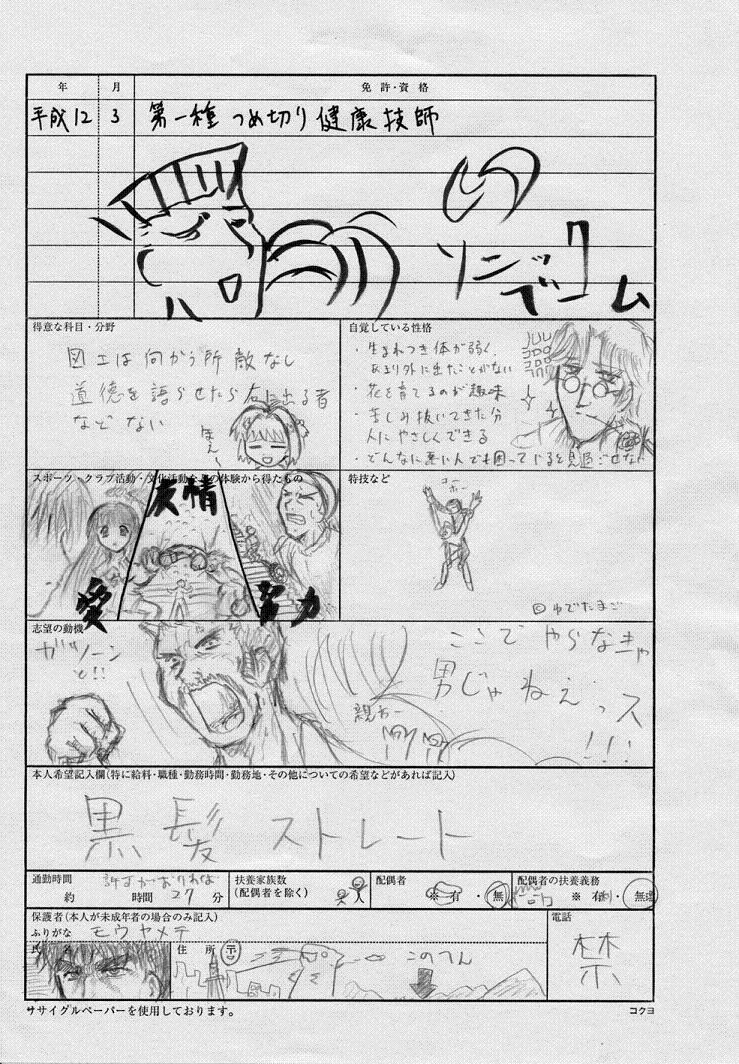 年 月 免許・資格
平成12 3 第一種 つめ切り健康技師
ソニック
ブーム
得意な科目・分野
図工は向かう所敵なし
道徳を語らせたら右に出る者
などない
ほえ〜
自覚している性格
・生まれつき体が弱く、
あまり外に出たことがない
・花を育てるのが趣味
・苦しみ抜いてきた分
人にやさしくできる
・どんなに悪い人でも困っていると見過ごせない
スポーツ・クラブ活動・文化活動などの体験から得たもの
友情
愛
努力
特技など
コホー
回ゆでたまご
志望の動機
ガツーン
と!!
ここでやらなきゃ
男じゃねえっス
!!!
本人希望記入欄(特に給料・職種・勤務時間・勤務地・その他についての希望などがあれば記入)
黒髪ストレート
通勤時間
約 時間 27 分
扶養家族数
(配偶者を除く) 人
配偶者
※ 有 ・ 無
配偶者の扶養義務
※ 有 ・ 無
保護者(本人が未成年者の場合のみ記入)
ふりがな モウヤメテ
氏 名
住 所
このへん
電話
禁
ササイグルペーパーを使用しております。
コクヨ